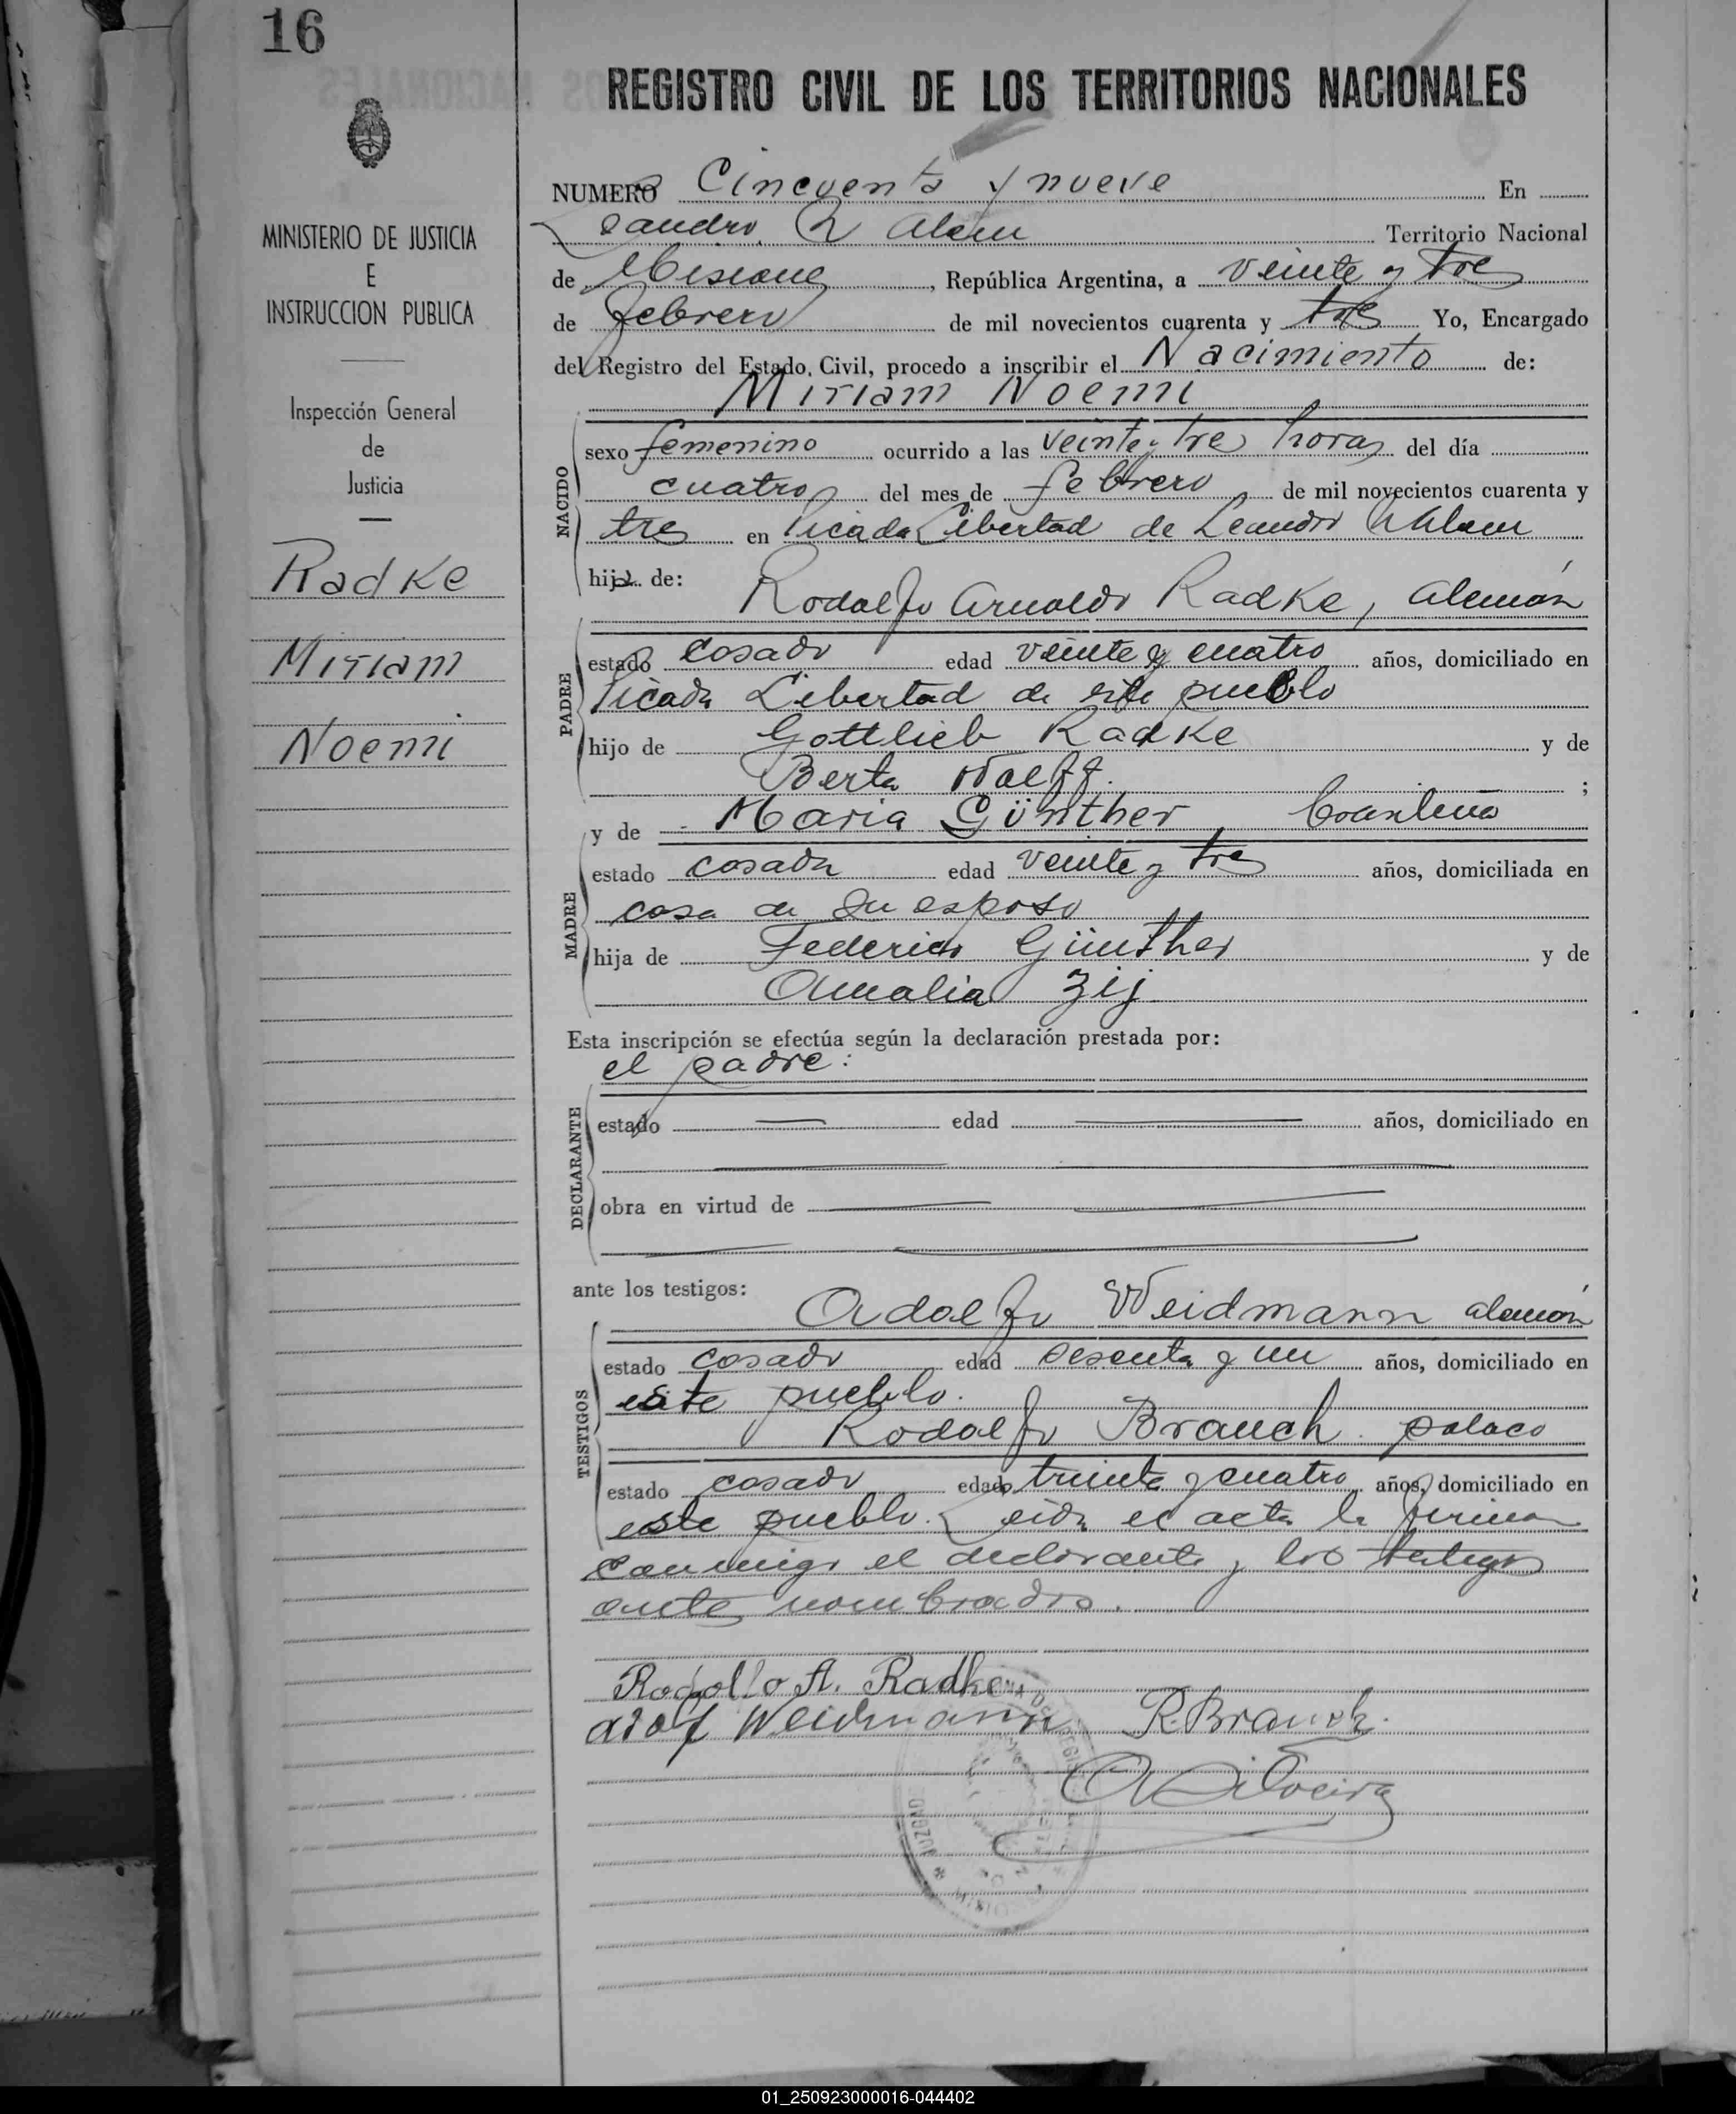 16
REGISTRO CIVIL DE LOS TERRITORIOS NACIONALES
MINISTERIO DE JUSTICIA
E
INSTRUCCION PUBLICA
Inspección General
de
Justicia
Radke
Miriam
Noemi
NUMERO Cincuenta y nueve En
Leandro N Alem Territorio Nacional
de Misiones, República Argentina, a veinte y tres
de febrero de mil novecientos cuarenta y tres Yo, Encargado
del Registro del Estado Civil, procedo a inscribir el Nacimiento de:
Miriam Noemi
NACIDO
sexo femenino ocurrido a las veinte y tres horas del día
cuatro del mes de febrero de mil novecientos cuarenta y
tres en Picada Libertad de Leandro N Alem
hija de: Rodolfo Arnoldo Radke, alemán
PADRE
estado casado edad veinte y cuatro años, domiciliado en
Picada Libertad de este pueblo
hijo de Gottlieb Radke y de
Berta Wolff. ;
y de Maria Günther brasilena
MADRE
estado casada edad veinte y tres años, domiciliada en
casa de su esposo
hija de Federico Günther y de
Amalia Zij
Esta inscripción se efectúa según la declaración prestada por:
el padre:
DECLARANTE
estado edad años, domiciliado en
obra en virtud de
ante los testigos: Adolfo Weidmann alemán
TESTIGOS
estado casado edad sesenta y un años, domiciliado en
este pueblo.
Rodolfo Brauch polaco
estado casado edad treinta y cuatro años, domiciliado en
este pueblo. Leida el acta la firman
conmigo el declarante y los testigos
antes nombrados.
Rodolfo A. Radke
Adolf Weidmann R. Brauch.
01_250923000016-044402